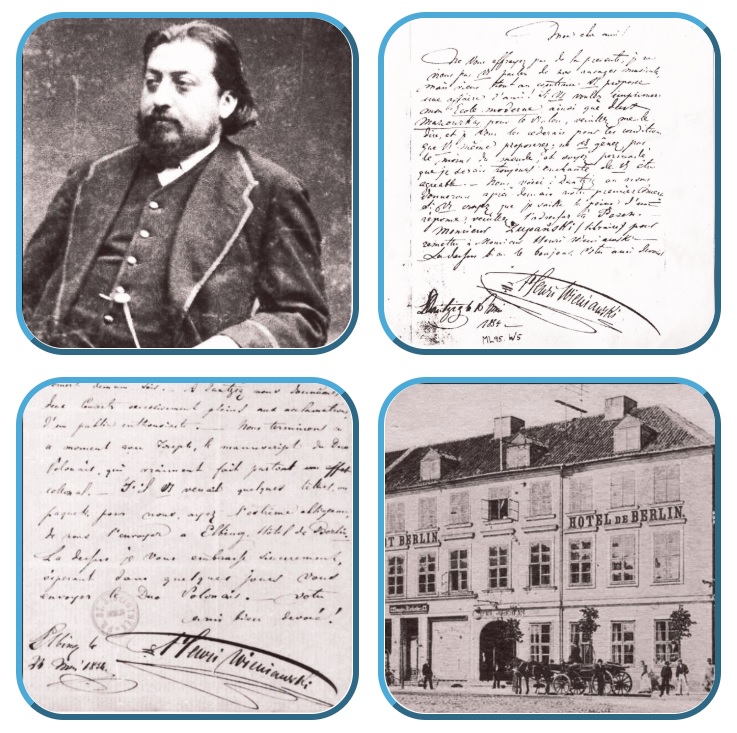 Mon cher ami!
Ne vous effrayez pas de la presente, je ne
vous pas parler de nos ouvrages musicals,
mais viens tout au contraire Vs proposer
une affaire d'ami! Si Vs voulez imprimer
mon Ecole moderne ainsi que deux
Mazourkas pour le Violon, veuillez me le
dire, et je Vous les cederais pour les conditions
que Vs même proposerez; ne Vs gênez pas
le moins du monde, et soyez persuadé
que je serais toujours enchanté de Vs être
agreable. — Nous voici à Dantzig où nous
donnerons après demain notre premier Concert
Si Vs croyez que je vaille la peine d'une
réponse, veuillez l'adresser à Posen
Monsieur Zupański (libraire) pour
remettre à Monsieur Henri Wieniawski
Henri Wieniawski
Dantzig le 15 Mai
1854
ML95.W5
demain soir. — A Dantzig nous donnâmes
deux Concerts excessivement pleins aux acclamations
d'un public enthousiaste. — Nous terminons
a moment avec Joseph, le manuscript du Duo
Polonais, qui vraiment fait partout un effet
colossal. — S'il Vs venait quelques lettres,
paquets pour nous, ayez l'extrême obligeance
de nous l'envoyer à Elbing, Hotel de Berlin.
La dessus je vous embrasse sincerement,
espérant dans quelques jours vous
envoyer le Duo Polonais. — Votre
ami bien devoué!
Henri Wieniawski
Elbing le
26 Mai 1854.
BERLIN
HOTEL DE BERLIN